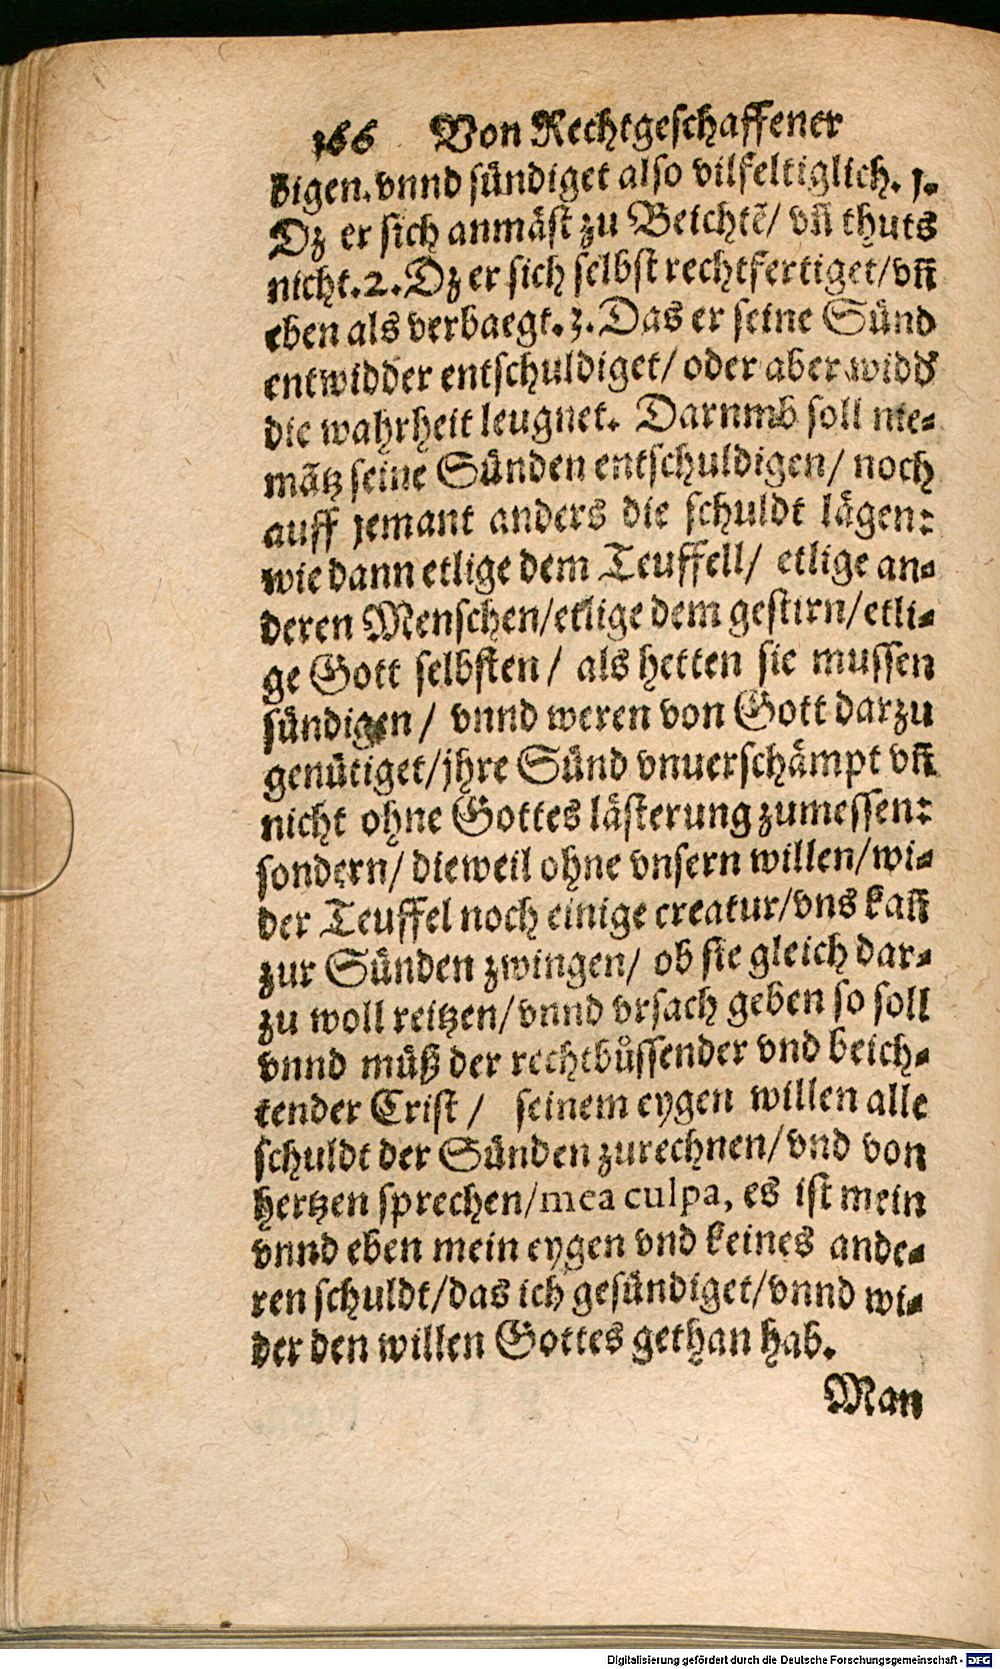 166 Von Rechtgeschaffener
digen. vnnd sündiget also vilfeltiglich. 1.
Dz er sich anmäst zu Beichtẽ/ vñ thuts
nicht. 2. Dz er sich selbst rechtfertiget/ vñ
eben als verbaegt. 3. Das er seine Sünd
entwidder entschuldiget/ oder aber widd
die wahrheit leugnet. Darnmb soll nie-
mãtz seine Sünden entschuldigen/ noch
auff jemant anders die schuldt lägen:
wie dann etlige dem Teuffell/ etlige an-
deren Menschen/ etlige dem gestirn/ etli-
ge Gott selbsten/ als hetten sie mussen
sündigen/ vnnd weren von Gott darzu
genütiget/ jhre Sünd vnuerschämpt vñ
nicht ohne Gottes lästerung zumessen:
sondern/ dieweil ohne vnsern willen/ wi-
der Teuffel noch einige creatur/ vns kañ
zur Sünden zwingen/ ob sie gleich dar-
zu woll reitzen/ vnnd vrsach geben so soll
vnnd müß der rechtbůssender vnd beich-
tender Crist/ seinem eygen willen alle
schuldt der Sünden zurechnen/ vnd von
hertzen sprechen/ mea culpa, es ist mein
vnnd eben mein eygen vnd keines ande-
ren schuldt/ das ich gesündiget/ vnnd wi-
der den willen Gottes gethan hab.
Man
Digitalisierung gefördert durch die Deutsche Forschungsgemeinschaft - DFG